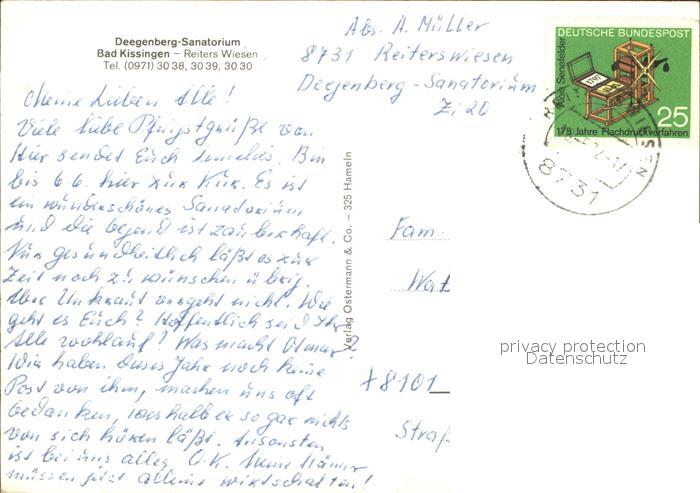 Deegenberg-Sanatorium
Bad Kissingen – Reiters Wiesen
Tel. (0971) 30 38, 30 39, 30 30
Meine Lieben Alle!
Viele liebe Pfingstgrüße von
Hier sendet Euch Bin
bis 6.6. hier zur Kur. Es ist
ein wunderschönes Sanatorium
und die Gegend ist zauberhaft.
Nur gesundheitlich läßt es zur
Zeit noch zu wünschen übrig.
Aber Unkraut vergeht nicht. Wie
geht es Euch? Hoffentlich seid Ihr
Alle wohlauf? Was macht Otmar?
Wir haben dieses Jahr noch keine
Post von ihm, machen uns oft
Gedanken, weshalb er so gar nichts
von sich hören läßt. Ansonsten
ist bei uns alles O.K. Meine Männer
müssen jetzt alleine wirtschaften!
Verlag Ostermann & Co. – 325 Hameln
Abs. A. Müller
8731 Reiterswiesen
Deegenberg-Sanatorium
Zi 20
DEUTSCHE BUNDESPOST
Alois Senefelder
25
175 Jahre Flachdruckverfahren
8731
Fam.
Wat
privacy protection
Datenschutz
8101
Straß